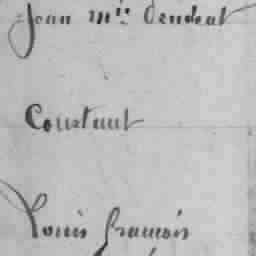 Jean mie Vendeat
Constant
Louis françois